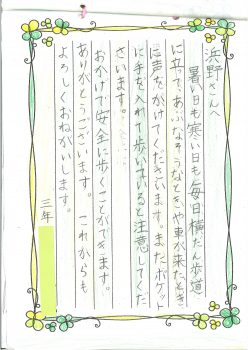 浜野さんへ
暑い日も寒い日も毎日横だん歩道
に立って、あぶなそうなときや車が来たとき
に声をかけてくださいます。またポケット
に手を入れて歩いていると注意してくだ
さいます。
おかげで安全に歩くことができます。
ありがとうございます。これからも
よろしくおねがいします。
三年